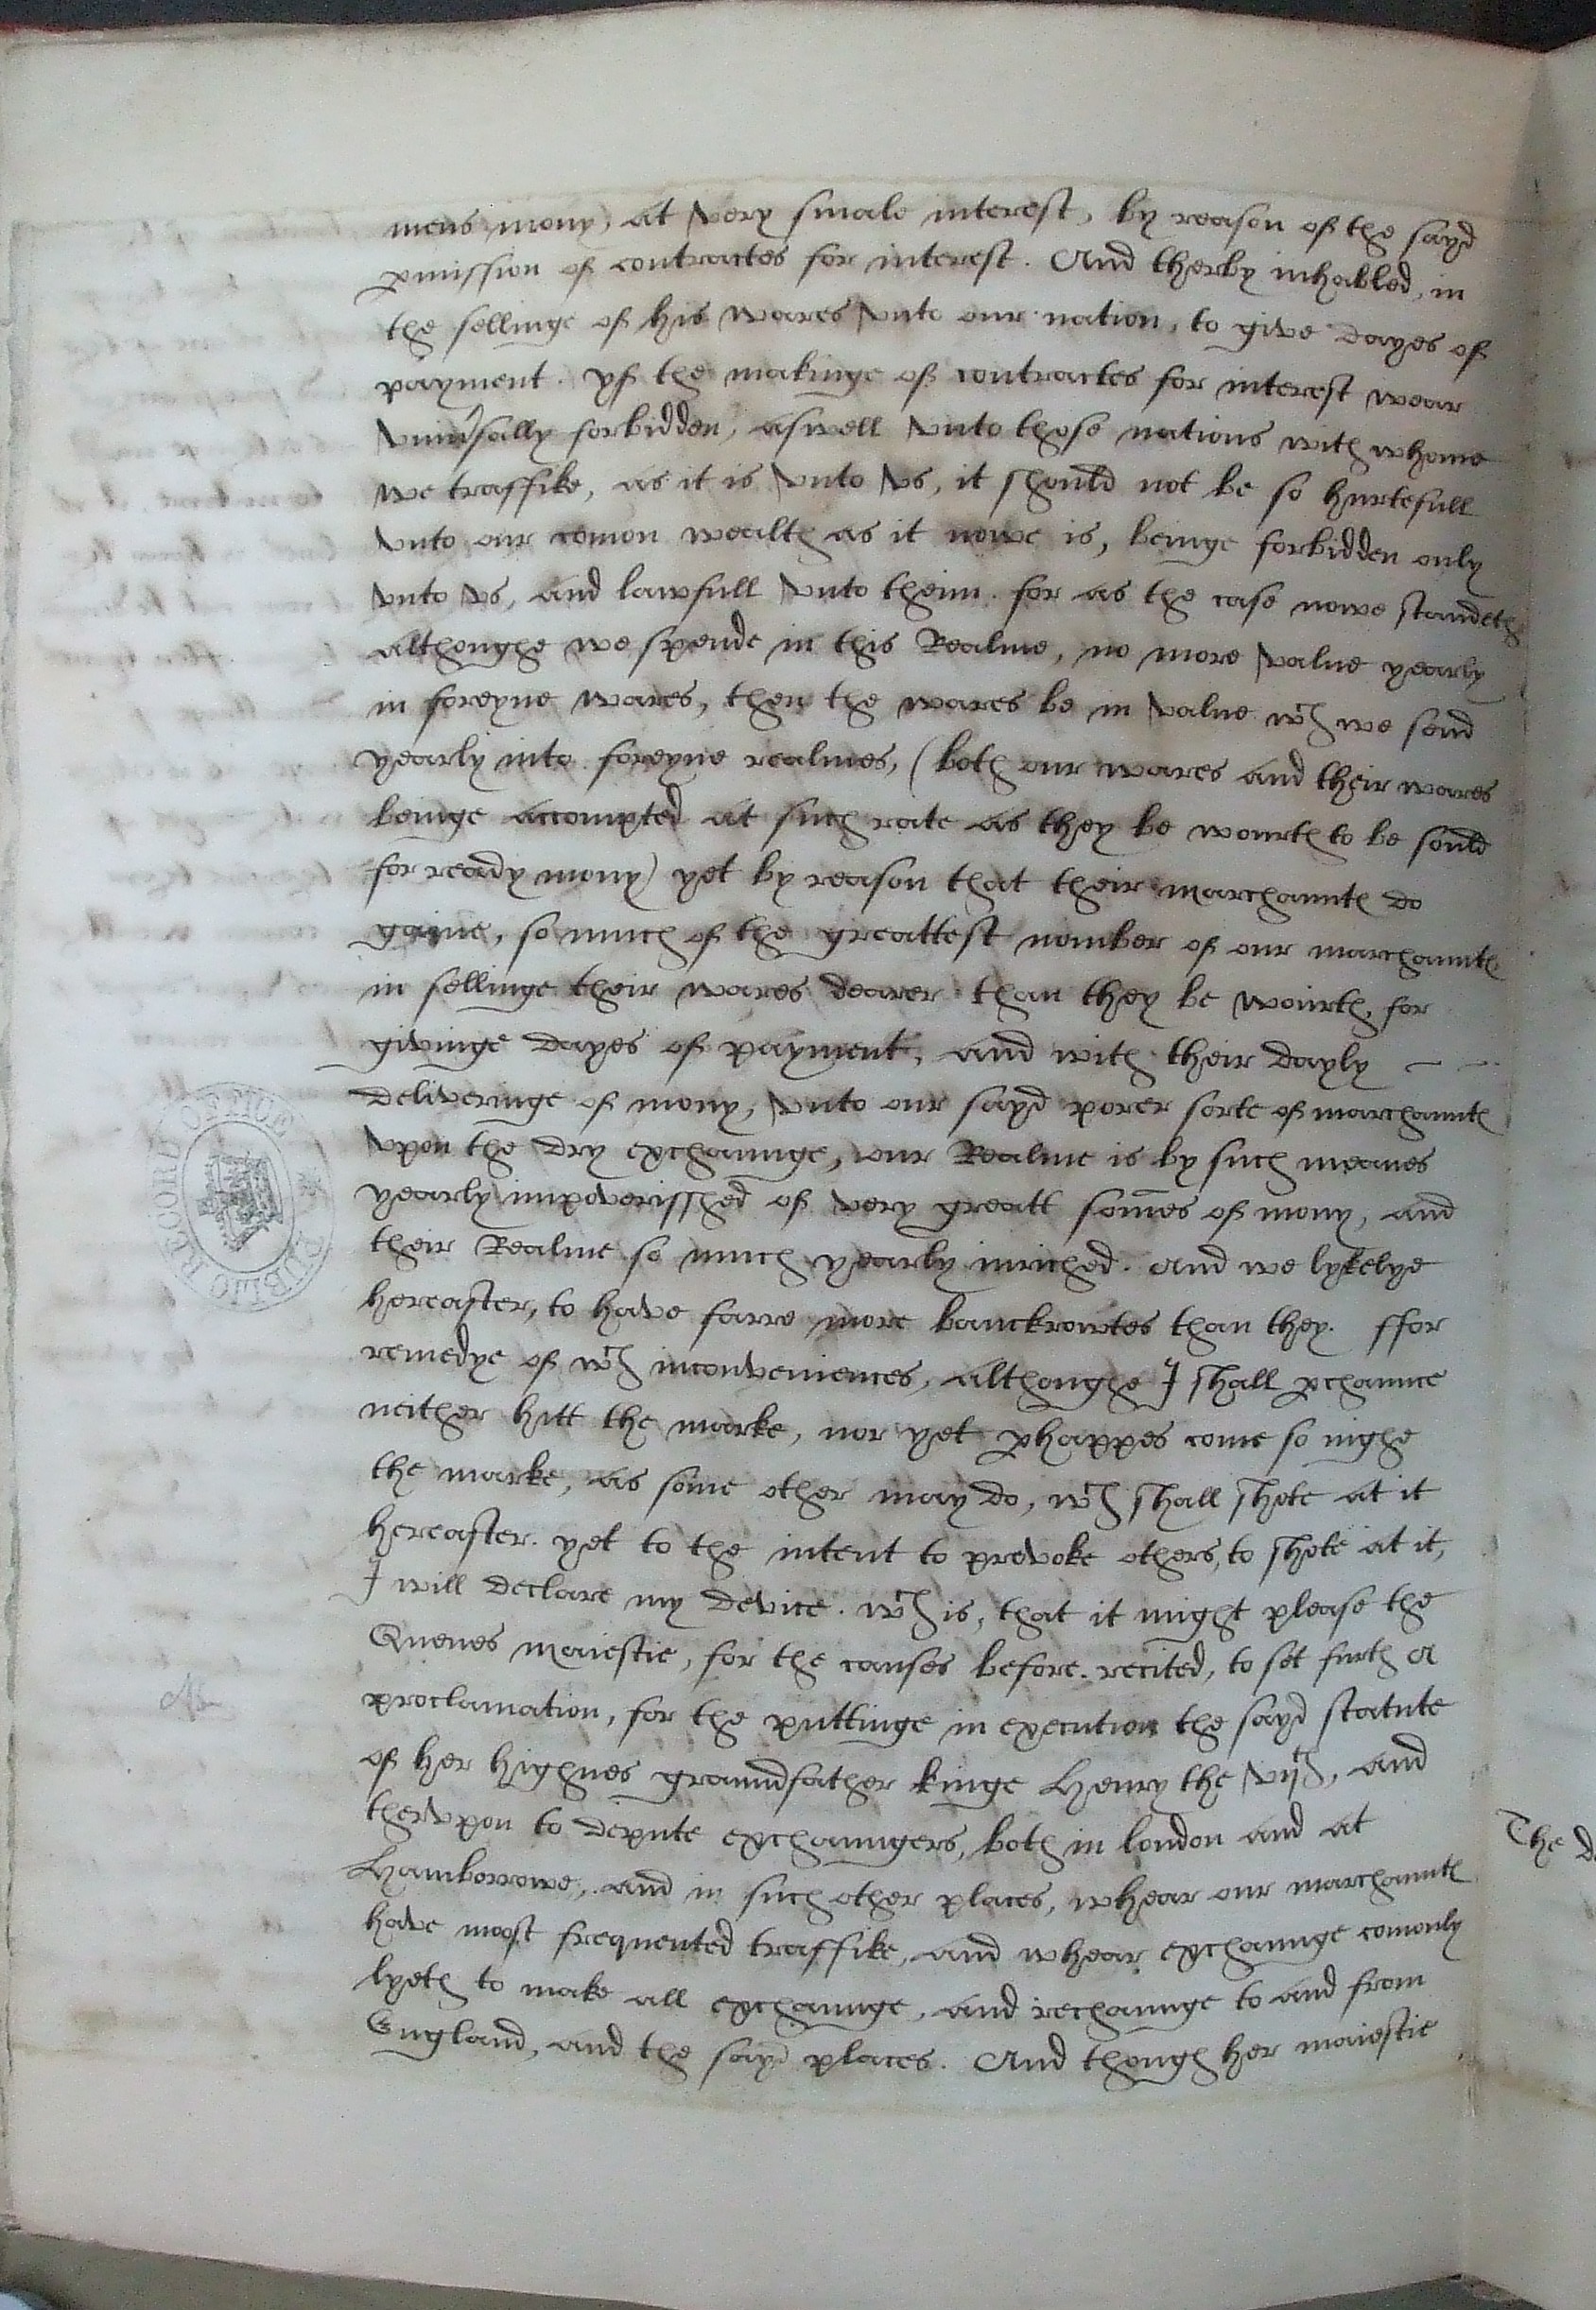 mens mony, at very smale interest, by reason of the sayd
pmission of contractes for interest. And therby inhabled, in
the sellinge of his wares vnto our nation, to give dayes of
payment. yf the makinge of contractes for interest wear
vniu'sally forbidden, aswell vnto those nations with whome
we traffike, as it is vnto vs, it should not be so hurtefull
vnto our comon wealth as it nowe is, beinge forbidden only
vnto vs, and lawfull vnto theim. for as the case nowe standeth
althoughe we spende in this Realme, no more value yearly
in foreyne wares, then the wares be in value wch we send
yearly into foreyne realmes, (both our wares and their wares
beinge accompted at such rate as they be wourth to be sould
for ready mony) yet by reason that their marchauntes do
gaine, so much of the greattest nomber of our marchauntes
in sellinge their wares dearer than they be wourth, for
givinge dayes of payment, and with their dayly
deliveringe of mony, vnto our sayd porer sorte of marchauntes
vpon the dry exchaunge, our Realme is by such meanes
yearly impoverisshed of very greatt somes of mony, and
their Realme so much yearly inriched. And we lykelye
hereafter, to have farre more banckrowtes than they. ffor
remedye of wch inconveniences, althoughe I shall pchaunce
neither hitt the marke, nor yet phappes come so nighe
the marke, as some other may do, wch shall shote at it
hereafter. yet to the intent to provoke others, to shote at it,
I will declare my device. wch is, that it might please the
Quenes maiestie, for the causes before recited, to set furth a
proclamation, for the puttinge in execution the sayd statute
of her highnes graundfather kinge Henry the vijth, and
thervpon to depute exchaungers, both in london and at
Hamborrowe, and in such other places, whear our marchauntes
have most frequented traffike, and whear exchaunge comonly
lyeth to make all exchaunge, and rechaunge to and from
England, and the sayd places. And though her maiestie
The
PUBLIC RECORD OFFICE